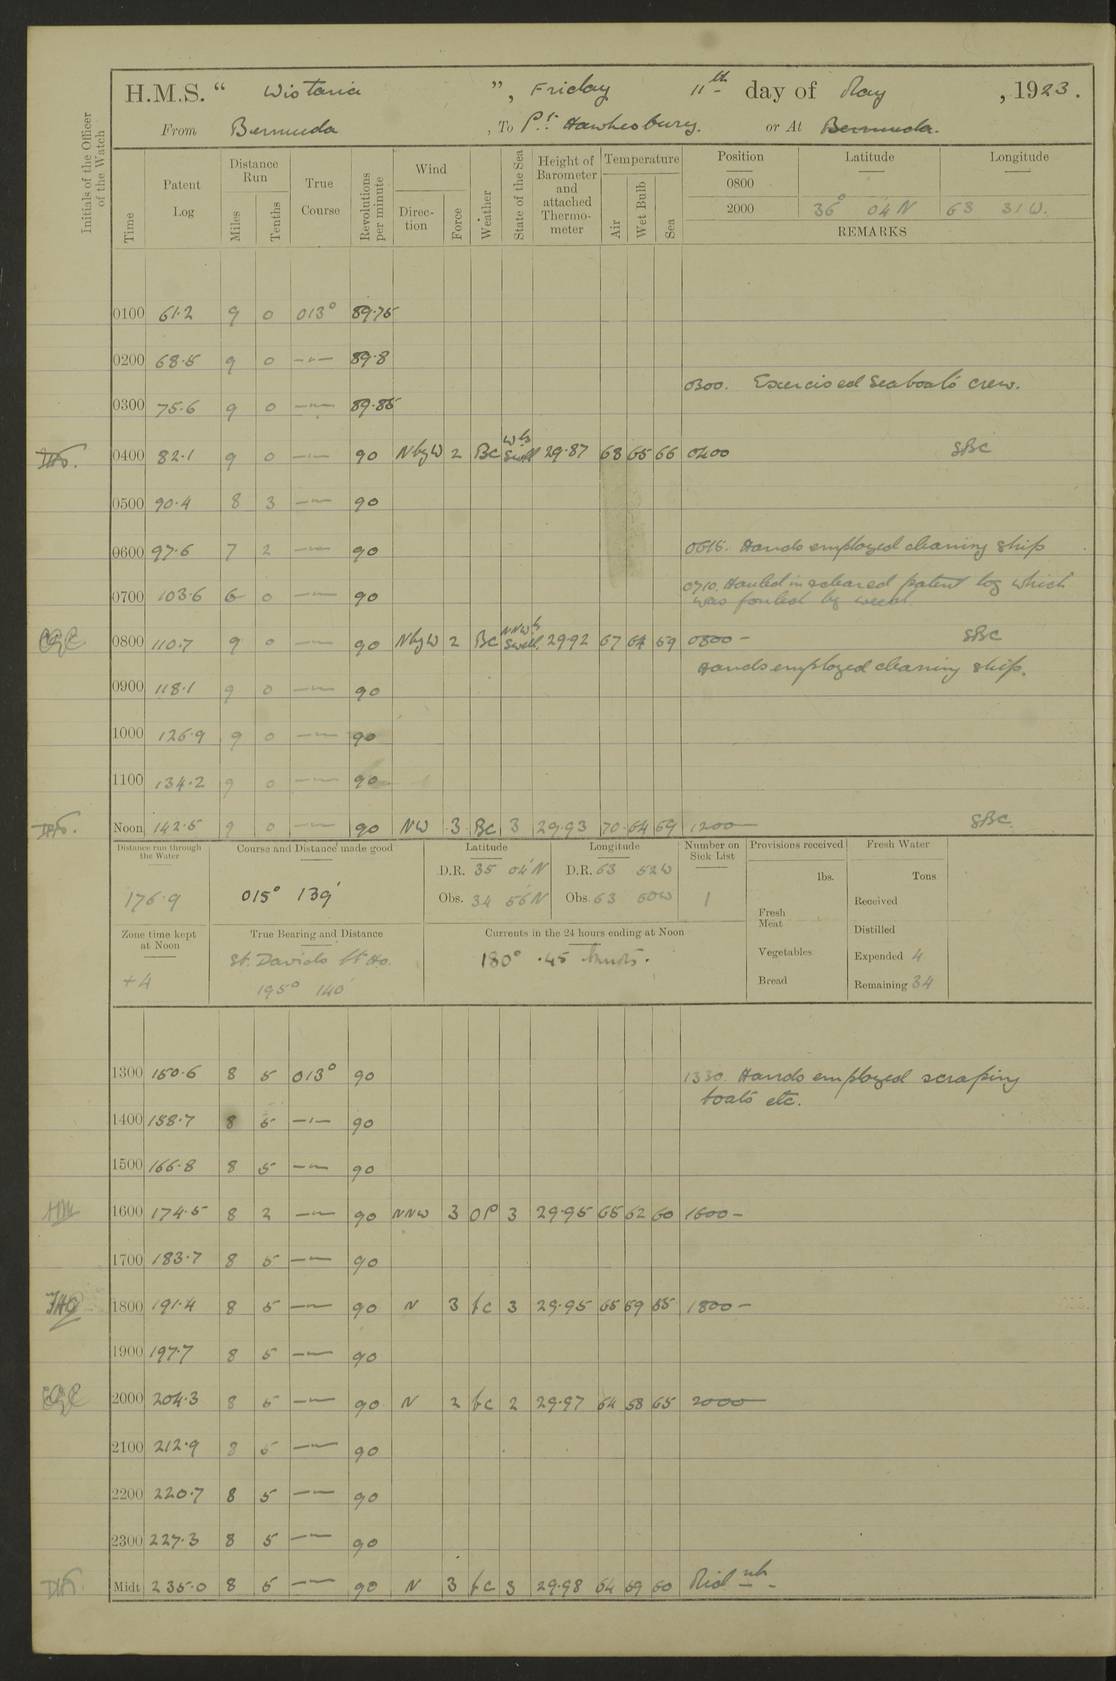 H.M.S. “ Wistaria ”, Friday 11th day of May , 1923.
From Bermuda , To Pt. Hawkesbury. or At Bermuda.
Initials of the Officer of the Watch
Time Patent Log Distance Run Miles Tenths True Course Revolutions per minute Wind Direction Force Weather State of the Sea Height of Barometer and attached Thermometer Temperature Air Wet Bulb Sea Position Latitude Longitude
0800
2000 36° 04'N 63 31W.
REMARKS
0100 61.2 9 0 013° 89.75
0200 68.5 9 0 –"– 89.8
0300. Exercised Seaboat's crew.
0300 75.6 9 0 –"– 89.85
0400 82.1 9 0 –"– 90 NbyW 2 BC Swell 29.87 68 65 66 0400 SBC
0500 90.4 8 3 –"– 90
0600 97.6 7 2 –"– 90 0615. Hands employed cleaning ship
0710. Hauled in & cleared patent log which
0700 103.6 6 0 –"– 90 was fouled by weed.
0800 110.7 9 0 –"– 90 NbyW 2 BC Swell. 29.92 67 64 69 0800 – SBC
Hands employed cleaning ship.
0900 118.1 9 0 –"– 90
1000 126.9 9 0 –"– 90
1100 134.2 9 0 –"– 90
Noon 142.5 9 0 –"– 90 NW 3 BC 3 29.93 70 64 69 1200 SBC
Distance run through the Water Course and Distance made good Latitude Longitude Number on Sick List Provisions received Fresh Water
D.R. 35 04'N D.R. 63 52W lbs. Tons
176.9 015° 139' Obs. 34 56'N Obs. 63 50W 1 Received
Fresh Meat
Zone time kept at Noon True Bearing and Distance Currents in the 24 hours ending at Noon Distilled
St. Davids Lt Ho. 180° .45 knots. Vegetables Expended 4
+4 195° 140' Bread Remaining 34
1300 150.6 8 5 013° 90 1330. Hands employed scraping
boats etc.
1400 158.7 8 5 –"– 90
1500 166.8 8 5 –"– 90
1600 174.5 8 2 –"– 90 NNW 3 OP 3 29.95 65 62 60 1600 –
1700 183.7 8 5 –"– 90
1800 191.4 8 5 –"– 90 N 3 bc 3 29.95 65 59 65 1800 –
1900 197.7 8 5 –"– 90
2000 204.3 8 5 –"– 90 N 2 bc 2 29.97 64 58 65 2000
2100 212.9 8 5 –"– 90
2200 220.7 8 5 –"– 90
2300 227.3 8 5 –"– 90
Midt 235.0 8 5 –"– 90 N 3 bc 3 29.98 64 59 60 Midnt.